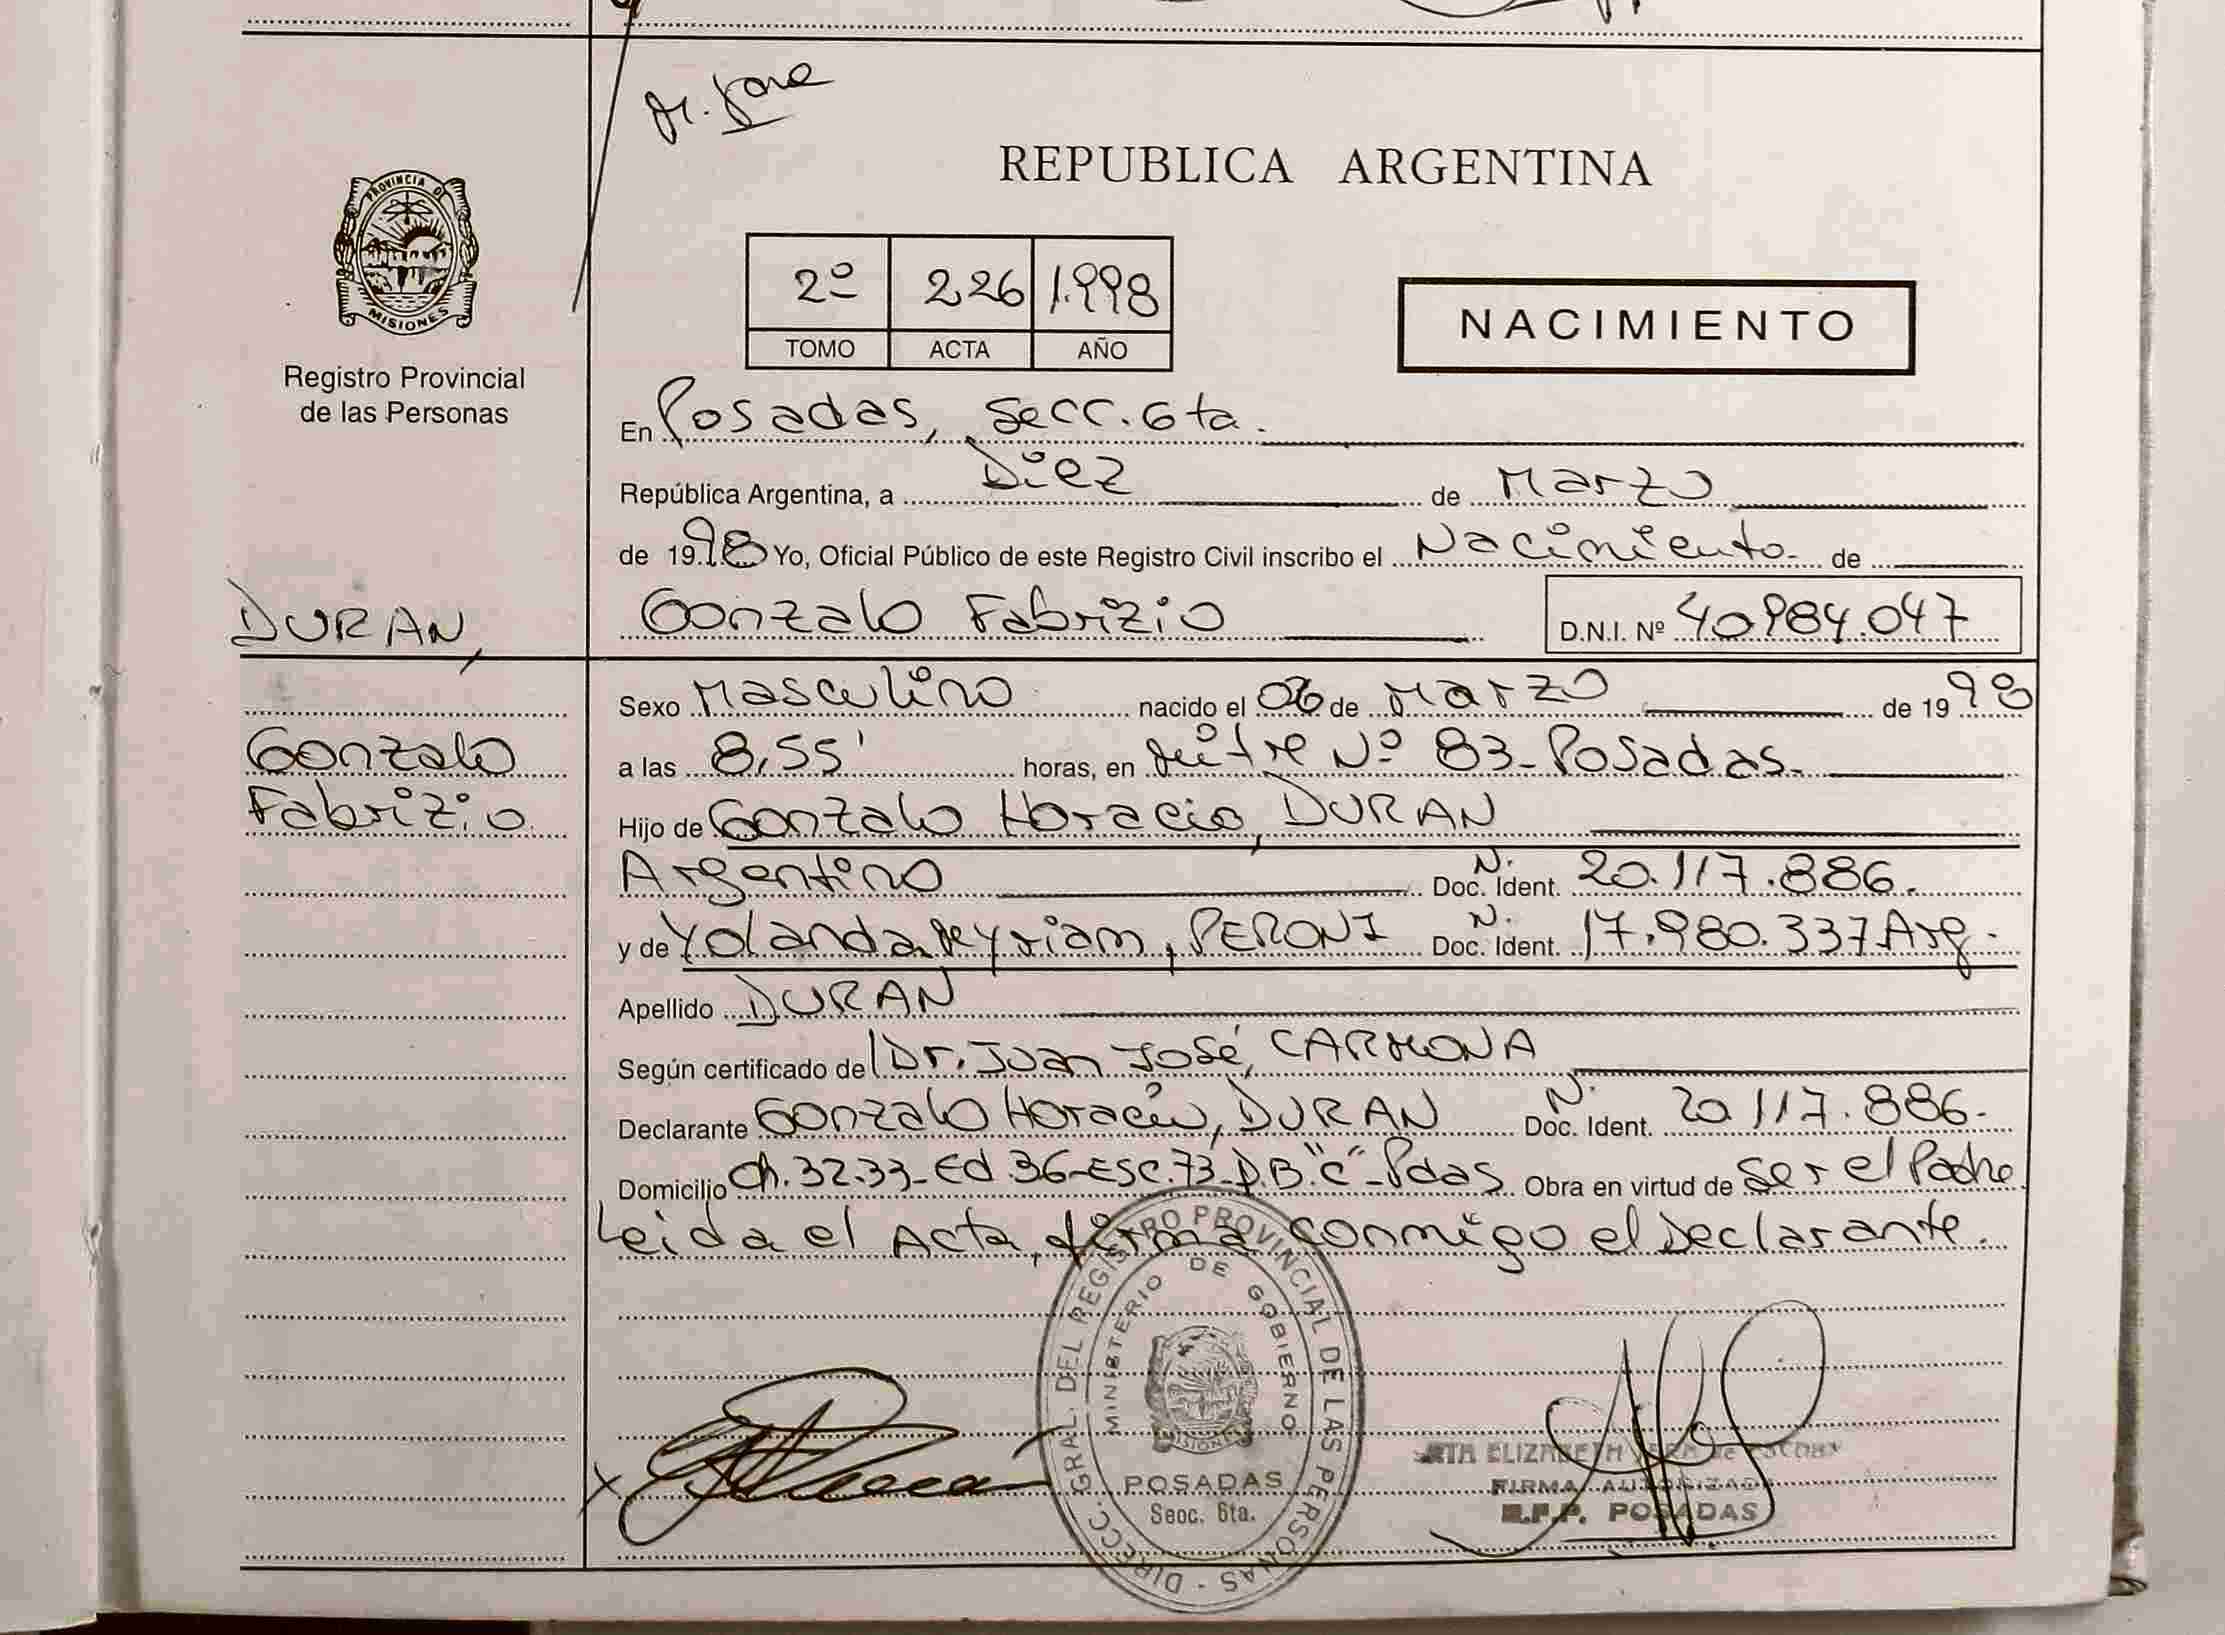 M. Jose
REPUBLICA ARGENTINA
PROVINCIA DE
MISIONES
Registro Provincial
de las Personas
2º 226 1.998
TOMO ACTA AÑO
NACIMIENTO
En Posadas, Secc. 6ta.
República Argentina, a Diez de Marzo
de 1998 Yo, Oficial Público de este Registro Civil inscribo el Nacimiento de
DURAN,
Gonzalo Fabrizio D.N.I. Nº 40984.047
Sexo Masculino nacido el 06 de Marzo de 1998
Gonzalo
a las 8,55' horas, en Mitre Nº 83-Posadas.
Fabrizio.
Hijo de Gonzalo Horacio, DURAN
Argentino N. Doc. Ident. 20.117.886.
y de Yolanda Meyriam, PERONI N. Doc. Ident. 17.980.337 Arg.
Apellido DURAN
Según certificado de Dr. Juan José, CARMONA
Declarante Gonzalo Horacio, DURAN N. Doc. Ident. 20 117.886.
Domicilio Ch.32.33-Ed.36-Esc.73-P.B."C"-Pdas Obra en virtud de ser el Padre
Leida el Acta, firma conmigo el Declarante.
DIRECC. GRAL. DEL REGISTRO PROVINCIAL DE LAS PERSONAS
MINISTERIO DE GOBIERNO
MISIONES
POSADAS
Secc. 6ta.
x
ELIZABETH de
FIRMA AUTORIZADA
R.P.P. POSADAS